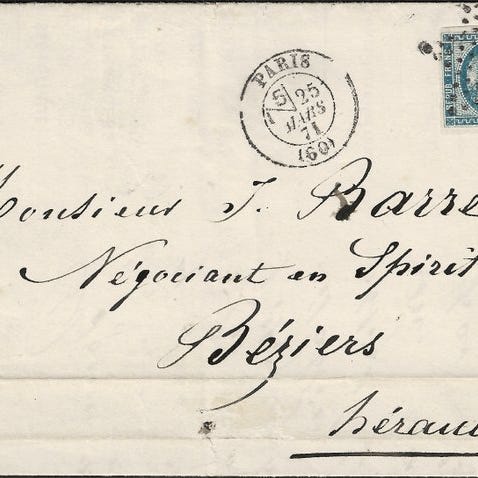 PARIS
5 25
MARS
71
(60)
REPUB. FRANC.
Monsieur J. Barre
Négociant en Spirit
Béziers
hérau